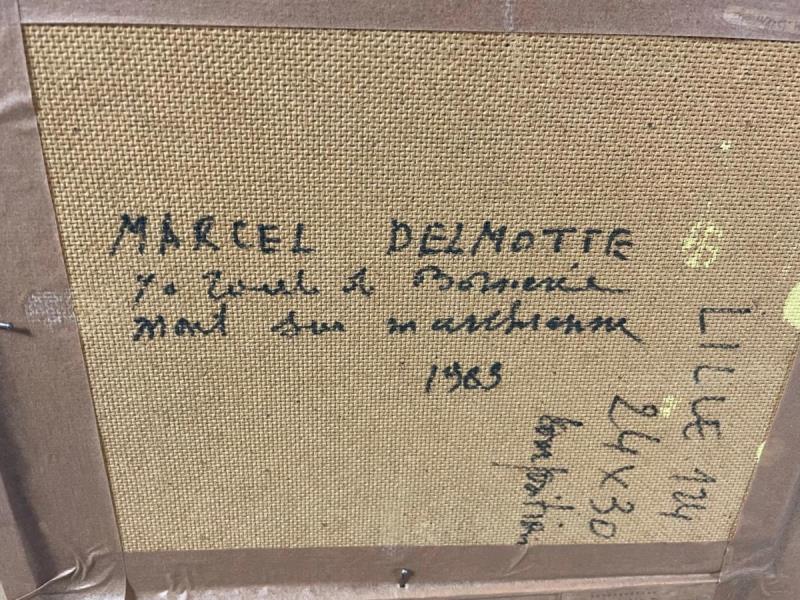 MARCEL DELMOTTE
70 route de
Mont sur marchienne
1969
LILLE 124
24 x 30
Composition